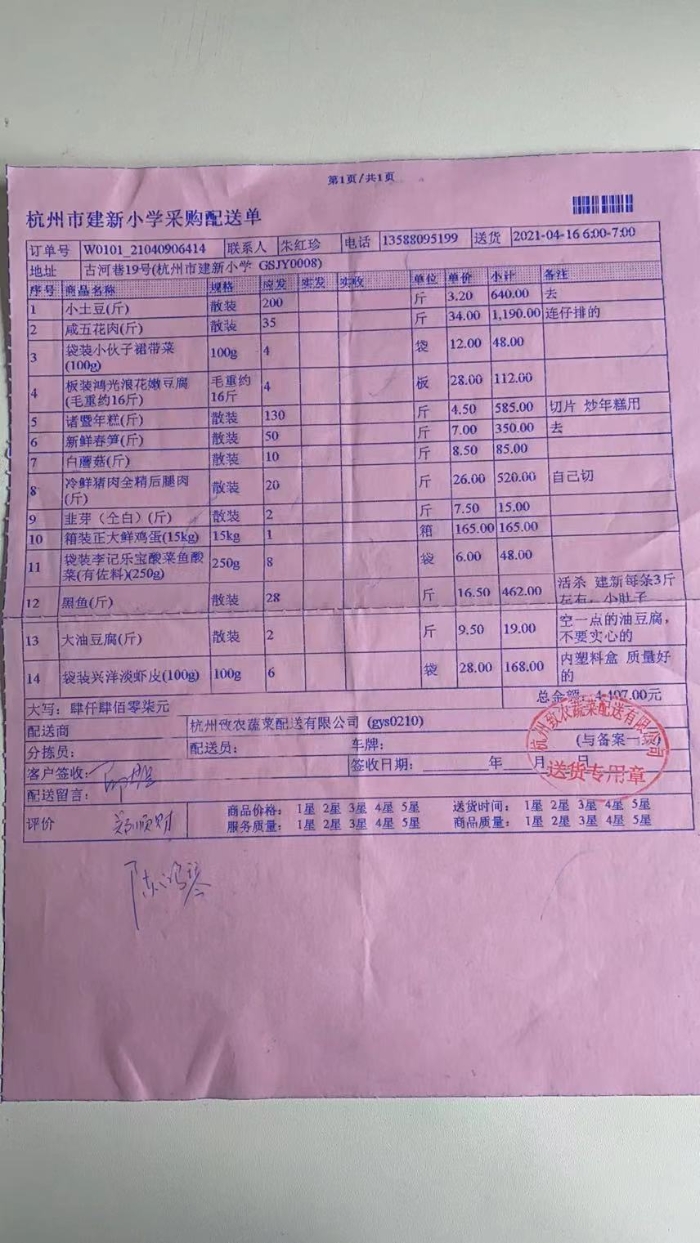 第1页/共1页
杭州市建新小学采购配送单
订单号 W0101_21040906414 联系人 朱红珍 电话 13588095199 送货 2021-04-16 6:00-7:00
地址 古河巷19号(杭州市建新小学 GSJY0008)
序号 商品名称 规格 应发 实发 实收 单位 单价 小计 备注
1 小土豆(斤) 散装 200 斤 3.20 640.00 去
2 咸五花肉(斤) 散装 35 斤 34.00 1,190.00 连仔排的
3 袋装小伙子裙带菜 100g 4 袋 12.00 48.00
(100g)
4 板装鸿光浪花嫩豆腐 毛重约 4 板 28.00 112.00
(毛重约16斤) 16斤
5 诸暨年糕(斤) 散装 130 斤 4.50 585.00 切片 炒年糕用
6 新鲜春笋(斤) 散装 50 斤 7.00 350.00 去
7 白蘑菇(斤) 散装 10 斤 8.50 85.00
8 冷鲜猪肉全精后腿肉 散装 20 斤 26.00 520.00 自己切
(斤)
9 韭芽（全白）(斤) 散装 2 斤 7.50 15.00
10 箱装正大鲜鸡蛋(15kg) 15kg 1 箱 165.00 165.00
11 袋装李记乐宝酸菜鱼酸 250g 8 袋 6.00 48.00
菜(有佐料)(250g)
12 黑鱼(斤) 散装 28 斤 16.50 462.00 活杀 建新每条3斤
左右，小肚子
13 大油豆腐(斤) 散装 2 斤 9.50 19.00 空一点的油豆腐，
不要实心的
14 袋装兴洋淡虾皮(100g) 100g 6 袋 28.00 168.00 内塑料盒 质量好
的
大写：肆仟肆佰零柒元 总金额：4,407.00元
配送商 杭州致农蔬菜配送有限公司 (gys0210)
分拣员： 配送员： 车牌： (与备案一致)
客户签收： 签收日期： 年 月 日
配送留言：
评价 商品价格： 1星 2星 3星 4星 5星 送货时间： 1星 2星 3星 4星 5星
服务质量： 1星 2星 3星 4星 5星 商品质量： 1星 2星 3星 4星 5星
杭州致农蔬菜配送有限公司
送货专用章